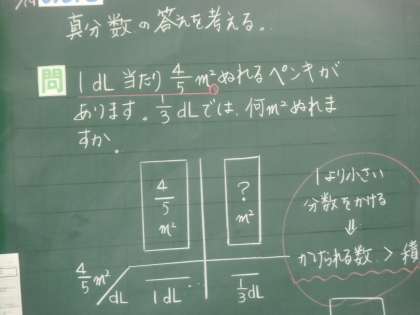 真分数の答えを考える。
問
1dL当たり 4/5 m²ぬれるペンキが
あります。1/3 dLでは、何m²ぬれま
すか。
4/5 m²
?
m²
4/5 m²/dL
1dL
...
1/3 dL
1より小さい
分数をかける
⇓
かけられる数 > 積